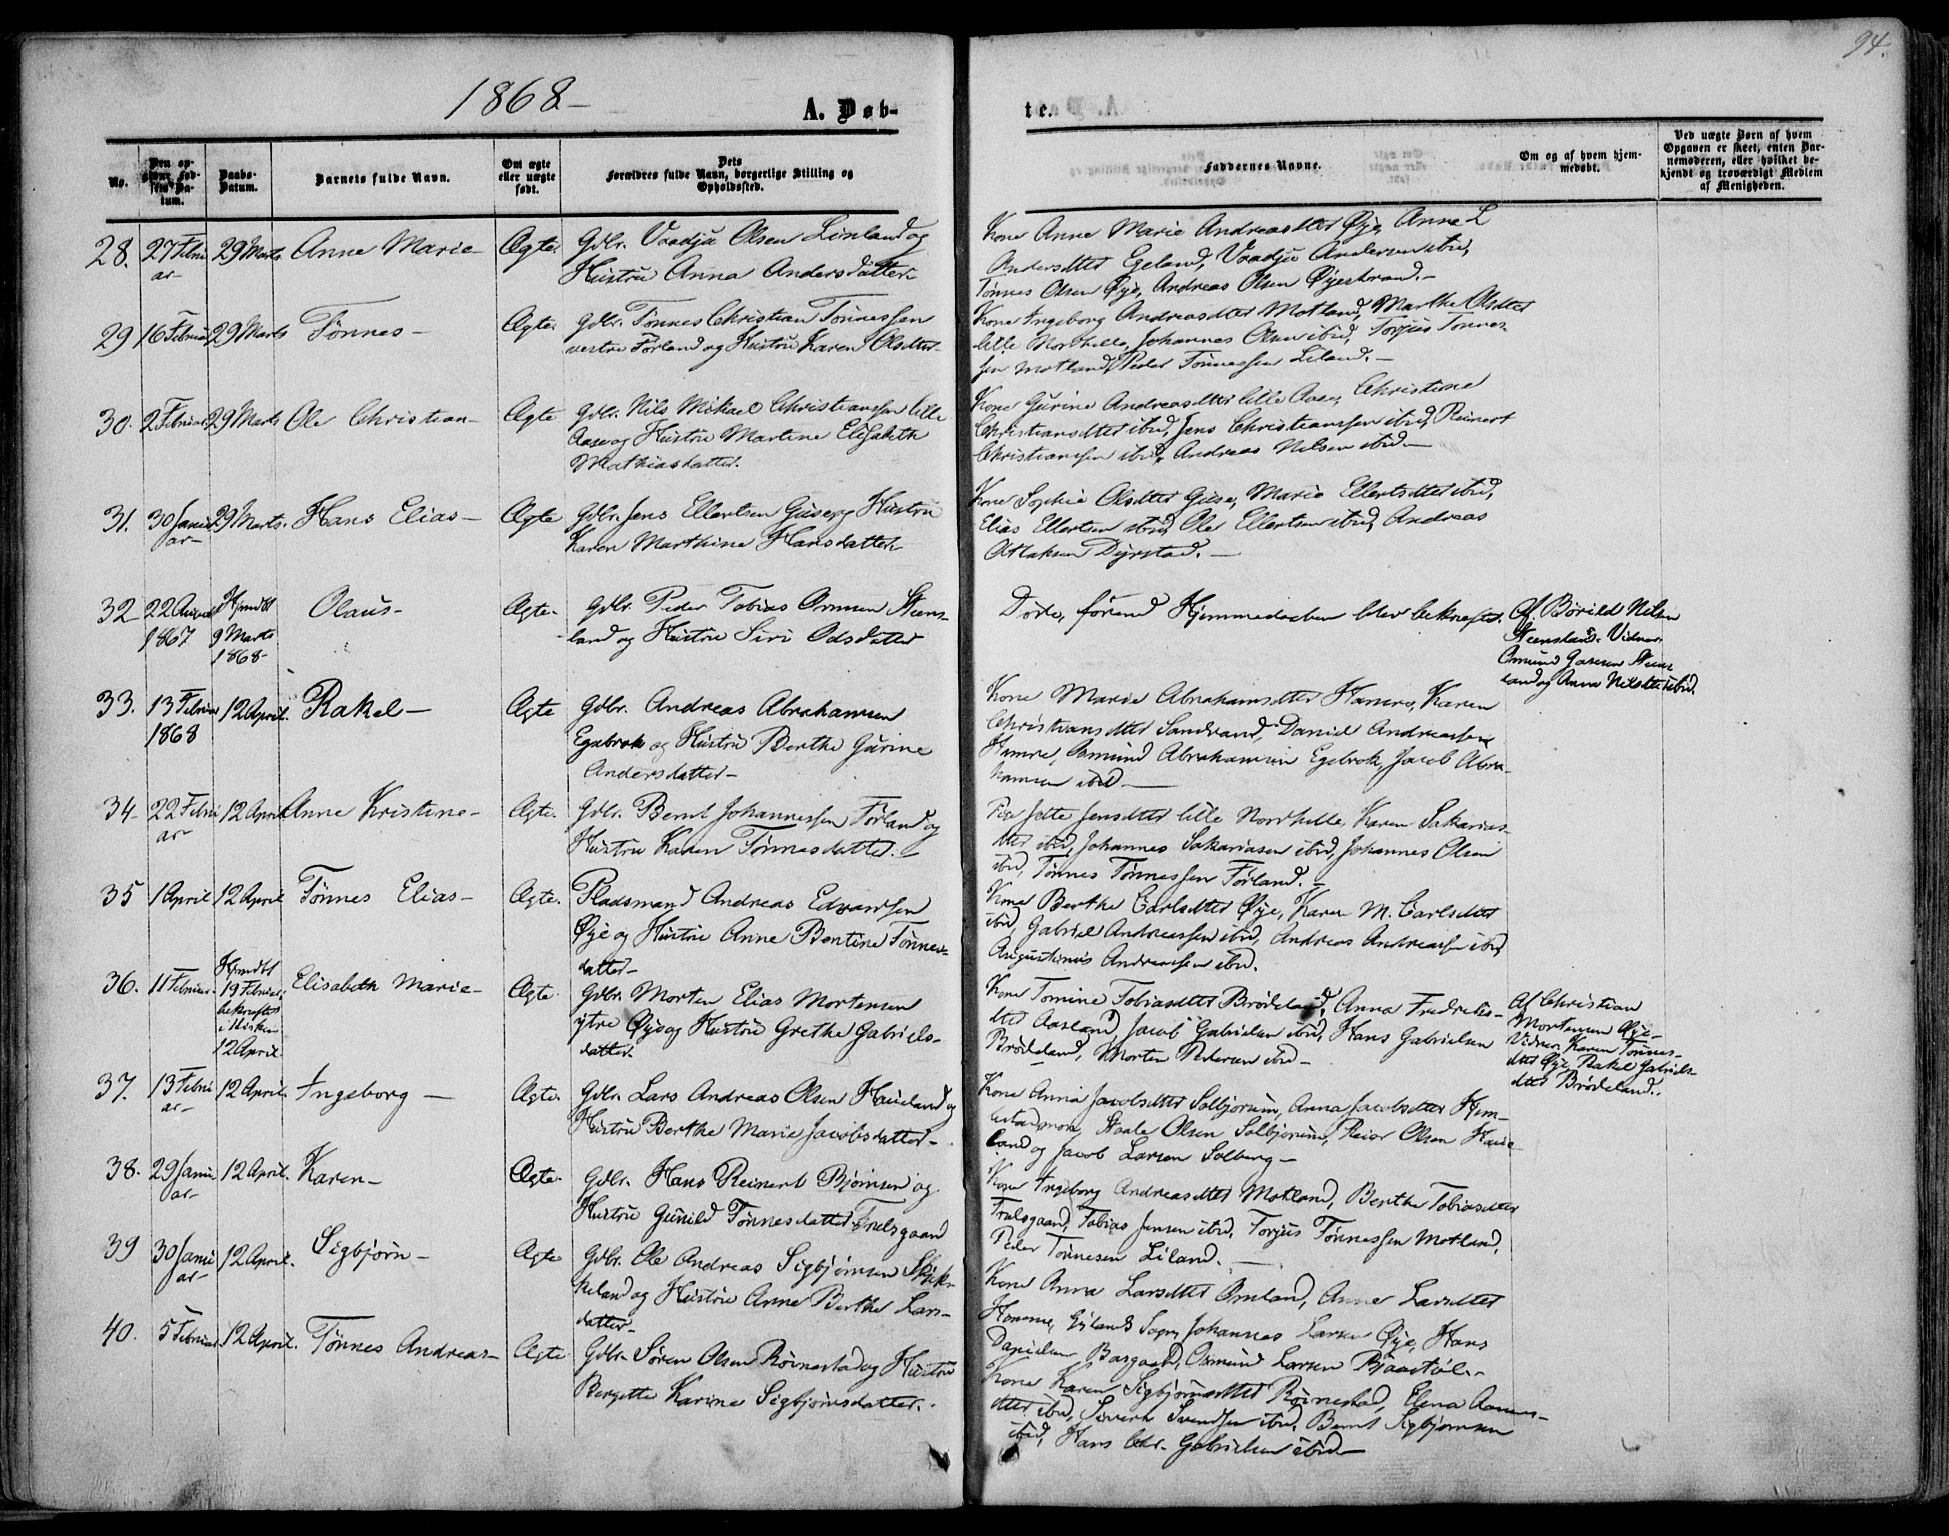 94.
1868-
A. Døb-
te.
No.
Den opgivne Fødsels Datum.
Daabs-Datum.
Barnets fulde Navn.
Om ægte eller uægte født.
Dets Forældres fulde Navn, borgerlige Stilling og Opholdssted.
Faddernes Navne.
Om og af hvem hjemmedøbt.
Ved uægte Børn af hvem Opgaven er skeet, enten Barnemoderen, eller hvilket bekjendt og troværdigt Medlem af Menigheden.
28. 27 Februar- 29 Marts Anne Marie- Ægte. Gdbr. Vradju Olsen Linland og
Hustru Anna Andersdatter-
Kone Anne Marie Andreasdtter Øye, Anne L
Andersdtter Egeland, Vradju Andersen ibid,
Tønnes Olsen Øye, Andreas Olsen Øyestrand.-
29 16 Februar 29 Marts Tønnes- Ægte. Gdbr. Tønnes Christian Tønnessen
vestre Førland og Hustru Karen Olsdtter-
Kone Ingeborg Andreasdtter Motland, Marthe Olsdtter
lille Norhelle, Johannes Olsen ibid, Torjus Tønnes-
sen Motland, Peder Tønnessen Liland.-
30. 2 Februar 29 Marts Ole Christian- Ægte Gdbr. Nils Mikael Christianssen lille
Aase og Hustru Martine Elisabeth
Mathiasdatter.
Kone Gurine Andreasdtter lille Aase, Christiane
Christiansdtter ibid, Jens Christianssen ibid, Reinert
Christianssen ibid, Andreas Nilsen ibid-
31. 30 Januar- 29 Marts. Hans Elias- Ægte Gdbr. Jens Ellertsen Guse og Hustru
Karen Marthine Hansdatter-
Kone Sophie Olsdtter Guse, Marie Ellertsdtter ibid,
Elias Ellertsen ibid, Ole Ellertsen ibid, Andreas
Atlaksen Dyrstad.-
32 22 1867 Hjmdbt 9 Marts 1868- Olaus- Ægte- Gdbr. Peder Tobias Osmunsen Steens-
land og Hustru Siri Odsdatter
Døde, førend Hjemmedaaben blev bekræftet.
Af Børild Nilsen
Steensland. Vidner.
Osmund Steens-
land og Anna Nilsdtter ibid.
33. 13 Februar 1868 12 April. Rakel- Ægte Gdbr. Andreas Abrahamsen
Egebrok og Hustru Berthe Gurine
Andersdatter-
Kone Marie Abrahamsdtter Hamre, Karen
Christiansdtter Sandvand, Daniel Andreassen
Hamre, Osmund Abrahamsen Egebrok, Jacob Abra-
hamsen ibid-
34- 22 Februar 12 April Anne Kristine- Ægte. Gdbr. Bernt Johannessen Førland og
Hustru Karen Tønnesdatter.-
Pige Jette Jensdtter lille Norrhelle, Karen Sakarias-
dtter ibid, Johannes Sakariasen ibid, Johannes Olsen
ibid, Tønnes Tønnessen Førland.-
35 1 April 12 April Tønnes Elias- Ægte. Pladsmand Andreas Edvardsen
Øye og Hustru Anne Bentine Tønnes-
datter-
Kone Berthe Carlsdtter Øye, Karen M. Carlsdtter
ibid, Gabriel Andreassen ibid, Andreas Andreassen ibid,
Augustinus Andreassen ibid.
36. 11 Februar. Hjmdbt 19 Februar, bekræftet i Kirken 12 April. Elisabeth Marie- Ægte. Gdbr. Morten Elias Mortensen
ytre Øye og Hustru Grethe Gabriels-
datter.
Kone Tomine Tobiasdtter Brødeland, Anna Fredriks-
dtter Aasland, Jacob Gabrielsen ibid, Hans Gabrielsen
Brødeland, Morten Pedersen ibid-
Af Christian
Mortensen Øye-
Vidner. Karen Tønnes-
dtter Øye, Rakel Gabriels-
dtter Brødeland.
37. 13 Februar- 12 April. Ingeborg- Ægte. Gdbr. Lars Andreas Olsen Haueland og
Hustru Berthe Marie Jacobsdatter-
Kone Anna Jacobsdtter Solbjorum, Anna Jacobsdtter Kum-
lestadmoen, Staale Olsen Solbjorum, Reier Olsen Haue-
land og Jacob Larsen Solberg-
38. 29 Januar- 12 April. Karen- Ægte. Gdbr. Hans Reinert Bjørnsen og
Hustru Gunild Tønnesdatter Trælsgaard
Kone Ingeborg Andreasdtter Motland, Berthe Tobiasdtter
Trælsgaard, Tobias Jensen ibid, Torjus Tønnessen Motland,
Peder Tønnesen Liland.-
39 30 Januar- 12 April. Sigbjørn- Ægte Gdbr. Ole Andreas Sigbjørnsen Skjek-
keland og Hustru Anne Berthe Lars-
datter-
Kone Anna Larsdtter Omland, Anne Larsdtter
Homme, Egelands Sogn, Johannes Larsen Øye, Hans
Danielsen Bargaard, Osmund Larsen Bjaastøl.-
40. 5 Februar 12 April. Tønnes Andreas- Ægte Gdbr- Søren Olsen Rørnestad og Hustru
Bergette Karine Sigbjørnsdatter.-
Kone Karen Sigbjørnsdtter Rørnestad, Elena Aanens-
dtter ibid, Sivert Svendsen ibid, Bernt Sigbjørnsen
ibid, Hans Chr. Gabrielsen ibid-